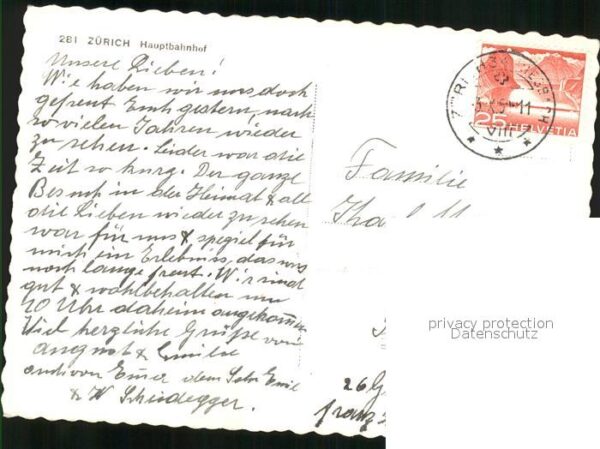 281 ZÜRICH Hauptbahnhof
Unsere Lieben!
Wie haben wir uns doch
gefreut Euch gestern, nach
so vielen Jahren wieder
zu sehen. Leider war die
Zeit so kurz. Der ganze
Besuch in der Heimat & all
die Lieben wieder zu sehen
war für uns & speziel für
mich ein Erlebnis, das uns
noch lange freut. Wir sind
gut & wohlbehalten um
20 Uhr daheim angekommen
Viel herzliche Grüße von
& Emilie
auch von Euer dem Sohn Emil
& W Scheidegger.
25 HELVETIA
VIII
Familie
26
privacy protection
Datenschutz